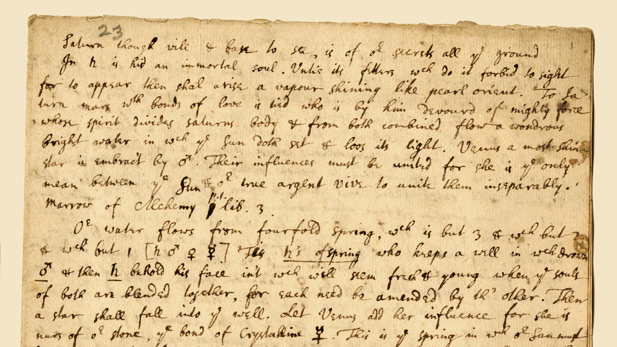 23
Saturn though vile & base to see, is of or secrets all ye ground
In ♄ is hid an immortal soul. Untie its fetters wch do it forbid to sight
for to appear then shal arise a vapour shining like pearl orient. To Sa
turn mars wth bonds of love is tied who is by him devourd of mighty force
whose spirit divides saturns body & from both combined flow a wondrous
bright water in wch ye Sun doth set & loos its light. Venus a most shin
star is embract by ♂. Their influences must be united for she is ye only
mean between ye Sun & or true argent vive to unite them inseparably.
Marrow of Alchemy pt lib. 3
Or water flows from fourfold spring, wch is but 3 wch but 2
& wch but 1 [♄ ♂ ♀ ☿] This ♄'s ofspring who keeps a well in wch drown
♂ & then ♄ behold his face int wch will seem fresh & young when ye souls
of both are blended together, for each need be amended by th' other. Then
a star shall fall into ye well. Let Venus add her influence for she is
nurs of or stone, ye bond of Crystalline ☿. This is ye spring in wch or Sun must